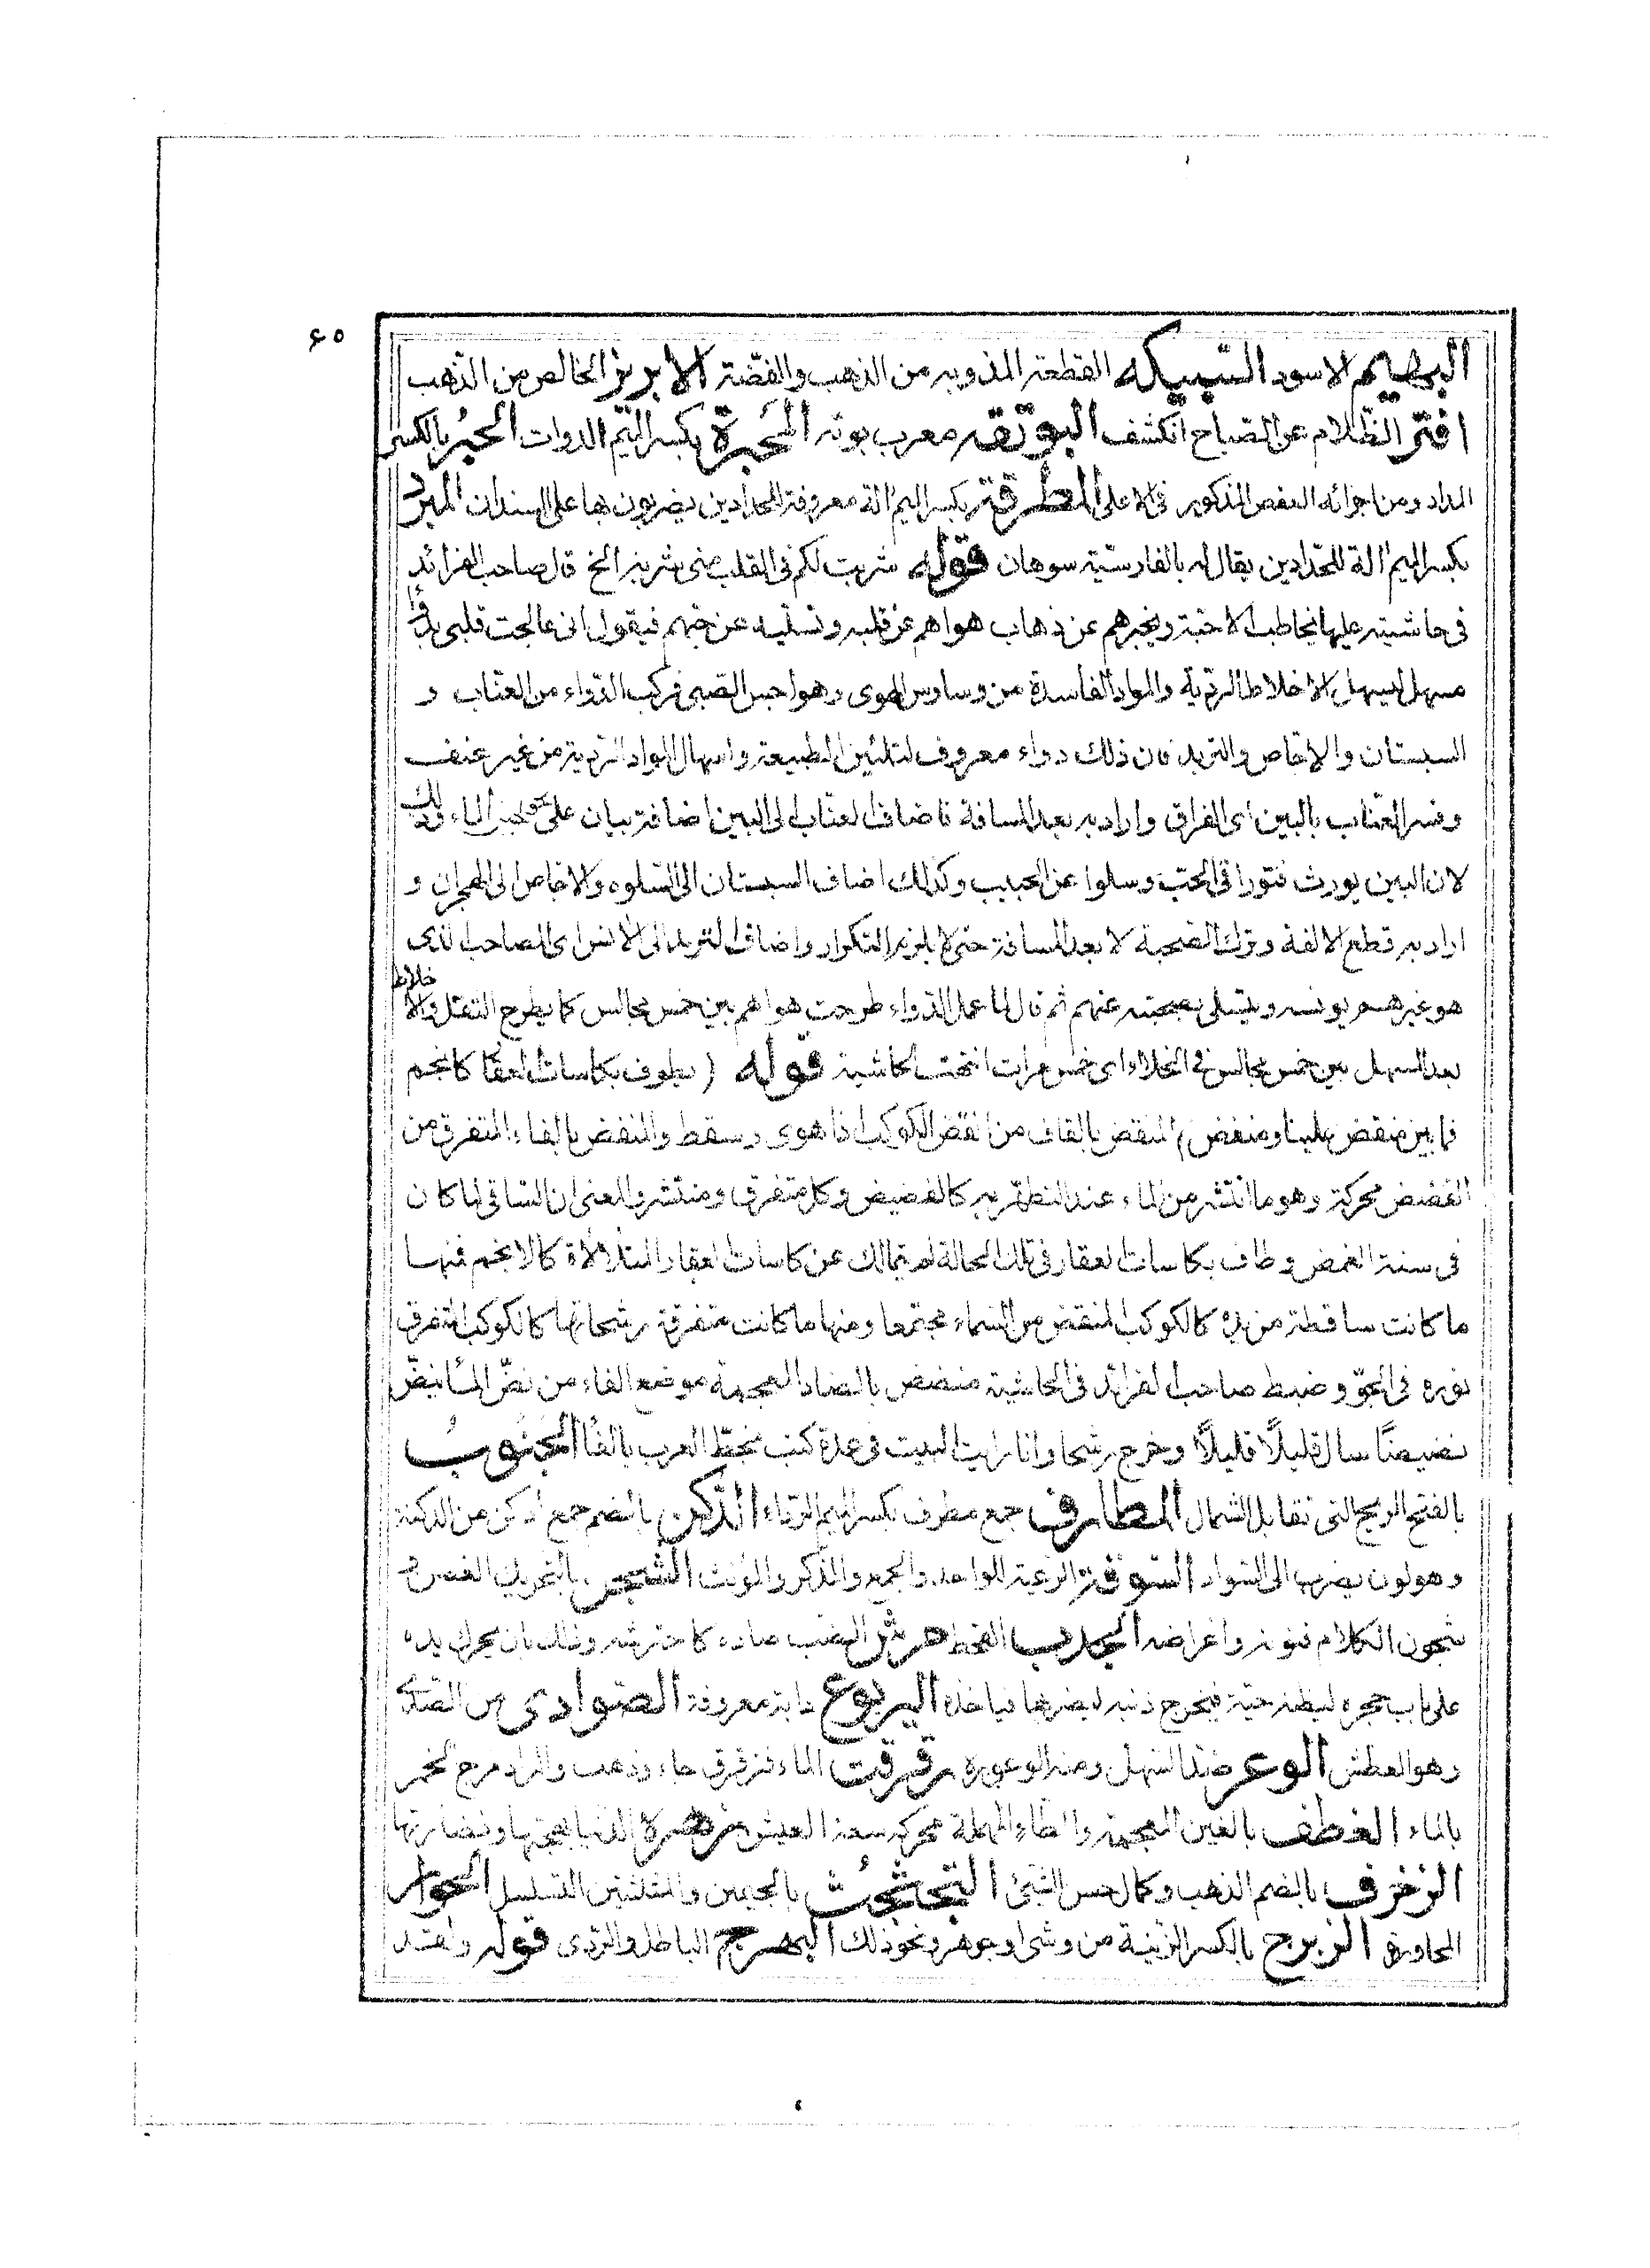 ۶۰
البهيم الاسود السبيكه القطعة المذوبه من الذهب والفضّة الابريز الخالص من الذهب
افترّ الظّلام عن الصّباح انكشف البوتقه معرب بوته المحبرة بكسر الميم الدوات الحبر بالكسر
المداد ومن اجزائه العفص المذكور فى الاعلى المطرقة بكسر الميم الة معروفة للحدادين يضربون بها على السندان المبرد
بكسر الميم الة للحدّادين يقال له بالفارسيّة سوهان قوله شربت لكم فى القلب منى شربة الخ قال صاحب الفرائد
فى حاشيته عليها يخاطب الاحبّة ويخبرهم عن ذهاب هواهم عن قلبه وتسليه عن حبّهم فيقول انى عالجت قلبى بدواء
مسهل ليسهل الاخلاط الرديّة والمواد الفاسدة من وساوس الهوى وهواجس الصبى فركب الدّواء من العنّاب و
السبستان والاجّاص والتربد فان ذلك دواء معروف لتليين الطبيعة واسهال المواد الرّديّة من غير عنف
وفسر العنّاب بالبين اى الفراق واراد به بعد المسافة فاضاف العنّاب الى البين اضافة بيان على نحو لجين الماء وذلك
لان البين يورث فتورا فى الحبّ وسلوا عن الحبيب وكذلك اضاف السبستان الى السّلوه والاجاص الى الهجران و
اراد به قطع الالفة وترك الصّحبة لا بعد المسافة حتى لا يلزم التكرار واضاف التربد الى الانس اى الصاحب الذى
هو غيرهم يونسه ويتسلى بصحبته عنهم ثم قال لما عمل الدّواء طرحت هواهم بين خمس مجالس كما يطرح الثقل والاخلاط
بعد المسهل بين خمس مجالس فى الخلاء اى خمس مرات انتهت الحاشية قوله (يطوف بكاسات العقار كانجم
فما بين منقض علينا ومنفض) المنقض بالقاف من انقضّ الكوكب اذا هوى وسقط والمنفض بالفاء المتفرق من
الفضض محركة وهو ما انتشر من الماء عند التطهّر به كالفضيض وكل متفرق ومنتشر والمعنى ان السّاقى لما كان
فى سنة الغمض وطاف بكاسات العقار فى تلك الحالة لم يتمالك عن كاسات العقار المتلألأة كالانجم فمنها
ما كانت ساقطة من يده كالكوكب المنقض من السّماء مجتمعا ومنها ما كانت متفرقة رشحاتها كالكوكب المتفرق
نوره فى الجوّ وضبط صاحب الفرائد فى الحاشية منضض بالضاد المعجمة موضع الفاء من نضّ الماء ينضّ
نضيضًا سال قليلًا قليلًا وخرج رشحا وانا رايت البيت فى عدة كتب بخطّ العرب بالفاء الجنوب
بالفتح الريح التى تقابل الشمال المطارف جمع مطرف بكسر الميم الرداء الدّكن بالضم جمع ادكن من الدكنة
وهو لون يضرب الى السّواد السّوقة الرعية للواحد والجمع والمذكر والمؤنث الشجن بالتحريك الغصن
شجون الكلام فنونه واغراضه الجدب القحط حرش الضّب صاده كاحترشه وذلك بان يحرك يده
على باب جحره ليظنه حيّة فيخرج ذنبه ليضربها فياخذه اليربوع دابة معروفة الصّوادى من الصّدى
وهو العطش الوعر ضدّ السّهل ومنه الوعورة رقرقت الماء فترقرق جاء وذهب والمراد مزج الخمر
بالماء الغطف بالغين المعجمة والطاء المهملة محركه سعة العيش زهرة الدّنيا بهجتها ونضارتها
الزخرف بالضم الذهب وكمال حسن الشّئ التجثجث بالجيمين والمثلثتين التسلسل الحوار
المحاورة الزبرج بالكسر الزّينة من وشى او جوهر ونحو ذلك البهرج الباطل والرّدى قوله ولقد